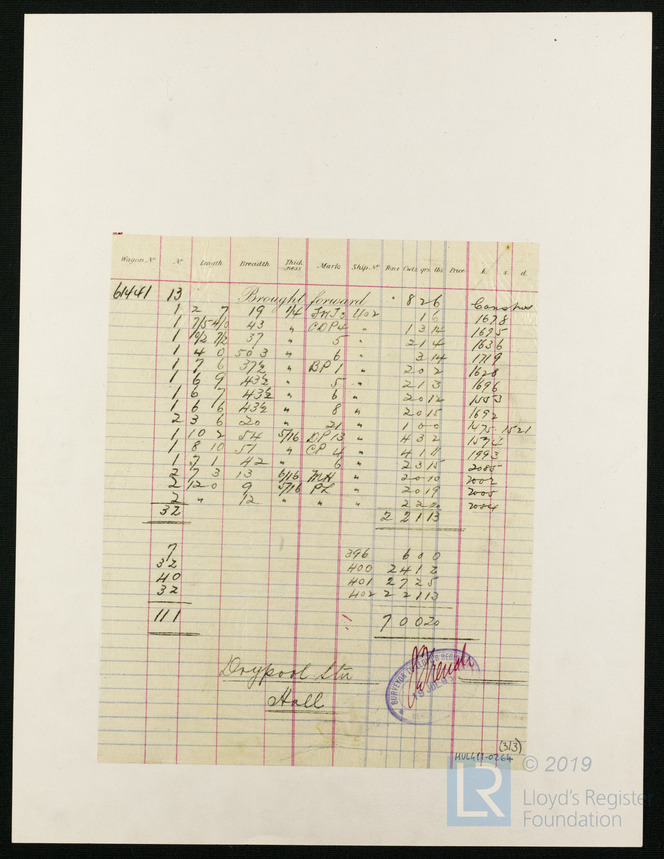 Wagon Nº Nº Length Breadth Thickness Mark Ship Nº Tons Cwts qrs lbs Price £. s. d.
61441 13 Brought forward " 8 2 6
1 2 7 19 1/4 402 16 1678
1 43 " CDP4 " 1 3 14 1695
1 37 " 5 " 2 1 4 1636
1 4 0 50 3 " 6 " 3 14 1719
1 7 6 37½ " BP 1 " 2 0 2 1628
1 6 9 43½ " 5 " 2 1 3 1696
1 6 7 43½ " 6 " 2 0 12
1 6 6 43½ " 8 " 2 0 15 1692
2 3 6 20 " 21 " 1 0 0 1475 1521
1 10 2 54 5/16 DP 13 " 4 3 2
1 8 10 51 " CP 4 " 4 1 11 1993
1 7 1 42 " 6 " 2 3 15 2085
2 7 3 13 6/16 MH " 2 0 10 2002
2 12 0 9 5/16 PL " 2 0 19 2005
2 " 12 " " " 2 2 20 2004
32 2 2 1 13
7 396 6 0 0
32 400 2 4 1 2
40 401 2 7 2 5
32 402 2 2 1 13
111 7 0 0 20
Drypool Stn
Hull
(3/3)
HUL411-0264
LR © 2019
Lloyd's Register
Foundation